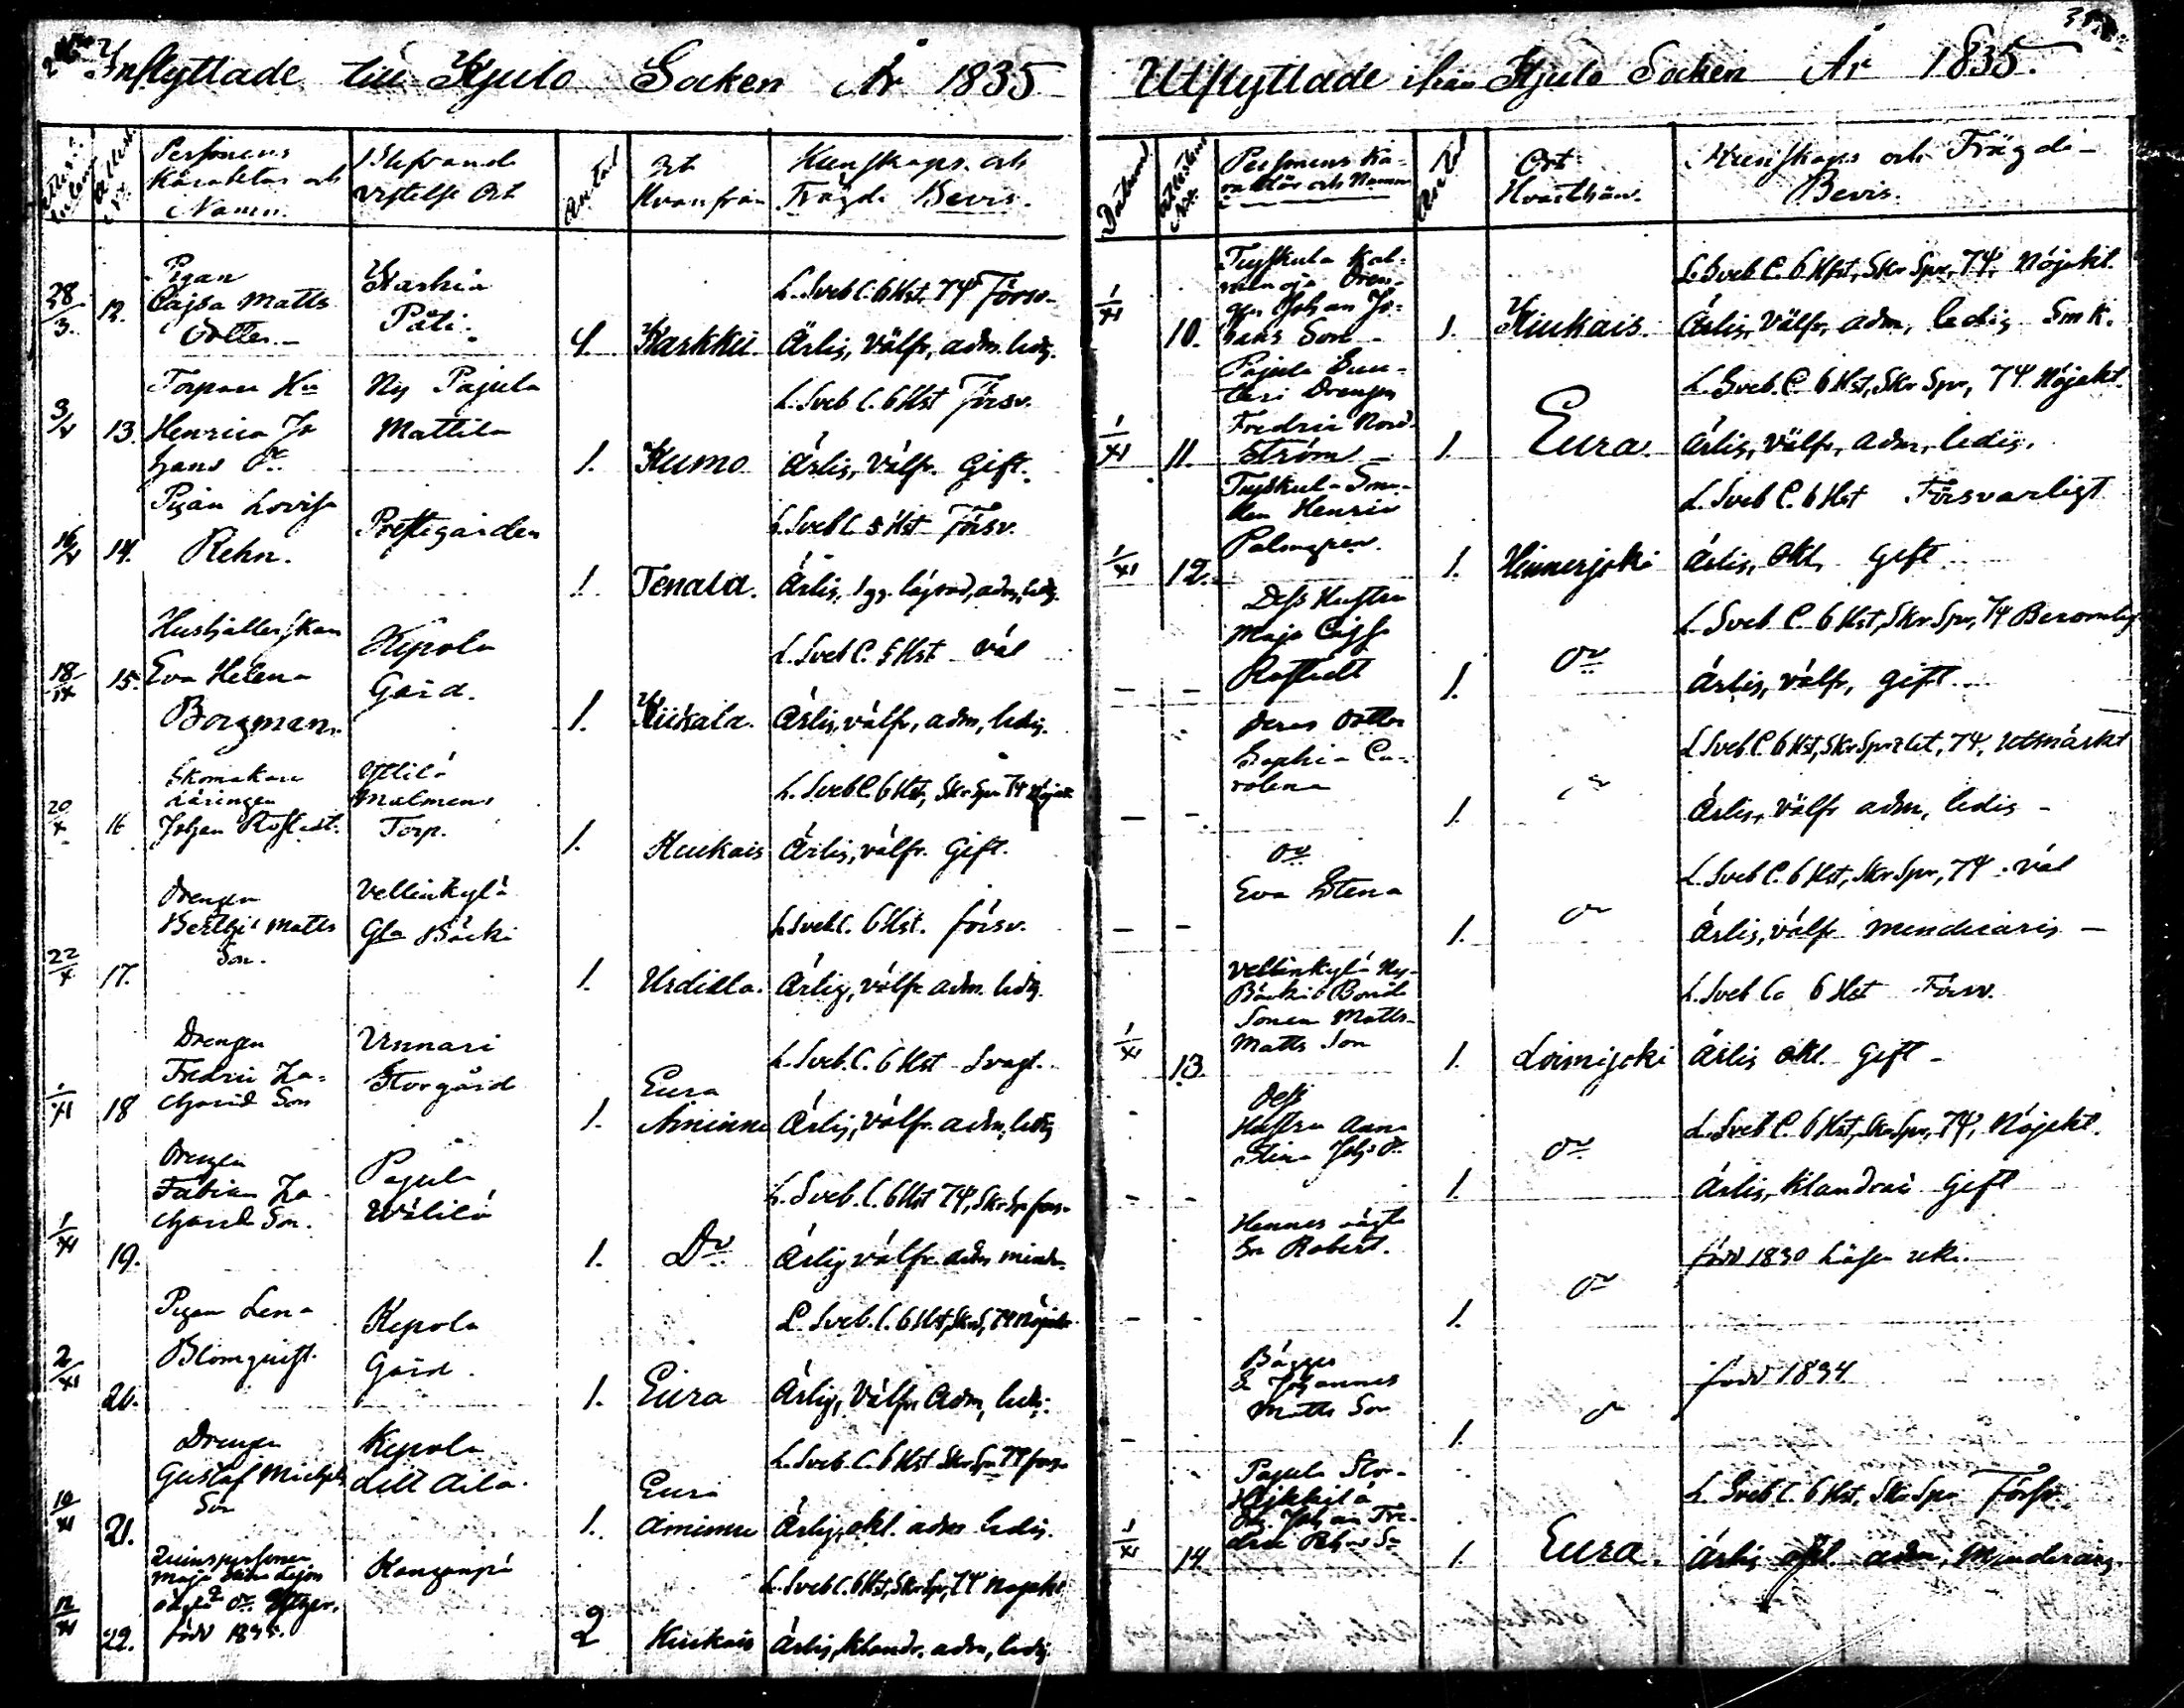 Inflyttade till Kjulo Socken År 1835
Personens Karakter och Namn.
Blifvande Vistelse Ort
Antal
Ort Hvarifrån
Kunskaps och Frägde Bevis.
28/3. 12. Pigan Cajsa Matts Dotter.
Karhia Päli.
1. Karkku
L. Sveb C. 6 Hst. 74 Försv.
Ärlig, Välfr, adm. ledig.
3/4 13. Torpare Hu Henrica Jo hans Dr.
Ny Pajula Mattila
1. Kumo
L. Sveb C. 6 Hst Försv.
Ärlig, Välfr. Gift.
14. Pigan Lovisa Rehn.
Prestegården
1. Tenala.
L. Sveb C. 5 Hst Försv.
Ärlig, 1 gg. lägrad, adm, ledig.
15. Hushållerskan Eva Helena Borgman.
Kepola Gård.
1. Kiikala.
L. Sveb C. 5 Hst Väl
Ärlig, välfr, adm, ledig.
16 Skomakare Johan Rostedt.
Yttilä Malmens Torp.
1. Kiukais
L. Sveb C. 6 Hst, Skr Spr 74 Nöjakt
Ärlig, välfr. Gift.
22/x 17. Drengen Berthil Matts Son.
Vellinkylä Gla Bäcki
1. Urdiala.
L. Sveb C. 6 Hst. försv.
Ärlig, välfr. adm. ledig.
1/XI 18 Drengen Fredric Za- chariæ Son
Unnari Storgård
1. Eura Aminne
L. Sveb. C. 6 Hst Svagt.
Ärlig, Välfr. adm, ledig
1/XI 19. Drengen Fabian Za- chariæ Son.
Pajula Wälilä
1. Do.
L. Sveb. C. 6 Hst 74, Skr Spr förs.
Ärlig välfr. adm mind.
2/XI 20. Pigan Lena Blomquist.
Kepola Gård.
1. Eura
L. Sveb. C. 6 Hst, 74 Nöjakt
Ärlig, Välfr, Adm, ledig.
10/XI 21. Drengen Gustaf Michels Son
Kepola Lill Aila.
1. Eura Aminne
L. Sveb. C. 6 Hst Skr Spr 74 förs.
Ärlig, okl. adm ledig.
12/XI 22. Qvinspersonen Maja Stina Lejon född 1835.
Kanganpä
2 Kiukais
L. Sveb C. 6 Hst, Skr Spr, 74 Nöjakt
Ärlig, klandr. adm, ledig.
Utflyttade ifrån Kjulo Socken År 1835.
Datum
Personens Ka- racktär och Namn
Antal
Ort Hvarthän.
Kunskaps och Frägde- Bevis.
1/XI 10. Tuiskula Drengen Johan Jo- hans Son
1. Kiukais.
L. Sveb C. 6 Hst, Skr Spr, 74, Nöjakt.
Ärlig, Välfr, adm, ledig Smk.
1/XI 11. Pajula Drengen Fredric Nord- ström
1. Eura.
L. Sveb. C. 6 Hst, Skr Spr, 74 Nöjakt.
Ärlig, Välfr, adm, ledig.
1/XI 12. Tuiskula Sme- den Henric Palmgren.
1. Hinnerjoki
L. Sveb C. 6 Hst Försvarligt
Ärlig, Okl, Gift
Dess Hustru Maja Cajsa Rostedt
1. Do
L. Sveb C. 6 Hst, Skr Spr, 74 Berömlig
Ärlig, välfr, gift
Deras Dotter Sophia Ca- rolina
1. Do
L. Sveb. C. 6 Hst, Skr Spr, 74, Utmärkt
Ärlig, Välfr adm, ledig
Do Eva Stena
1. Do
L. Sveb C. 6 Hst, Skr Spr, 74. Väl
Ärlig, välfr minderårig
1/XI 13. Vellinkylä Ny- Bäcki Bonde Sonen Matts Matts Son
1. Loimijoki
L. Sveb C. 6 Hst Försv.
Ärlig Okl. Gift
Dess Hustru Anna Stina Johs Dr
1. Do
L. Sveb C. 6 Hst, Skr Spr, 74, Nöjakt.
Ärlig, klandrad Gift
Hennes oägta Son Robert.
1. Do
född 1830
Bägges Sn Johannes Matts Son
1. Do
född 1834
1/XI 14. Pajula Stor- Heikkilä
1. Eura.
L. Sveb C. 6 Hst, Skr Spr Försv.
Ärlig okl. adm, Minderårig